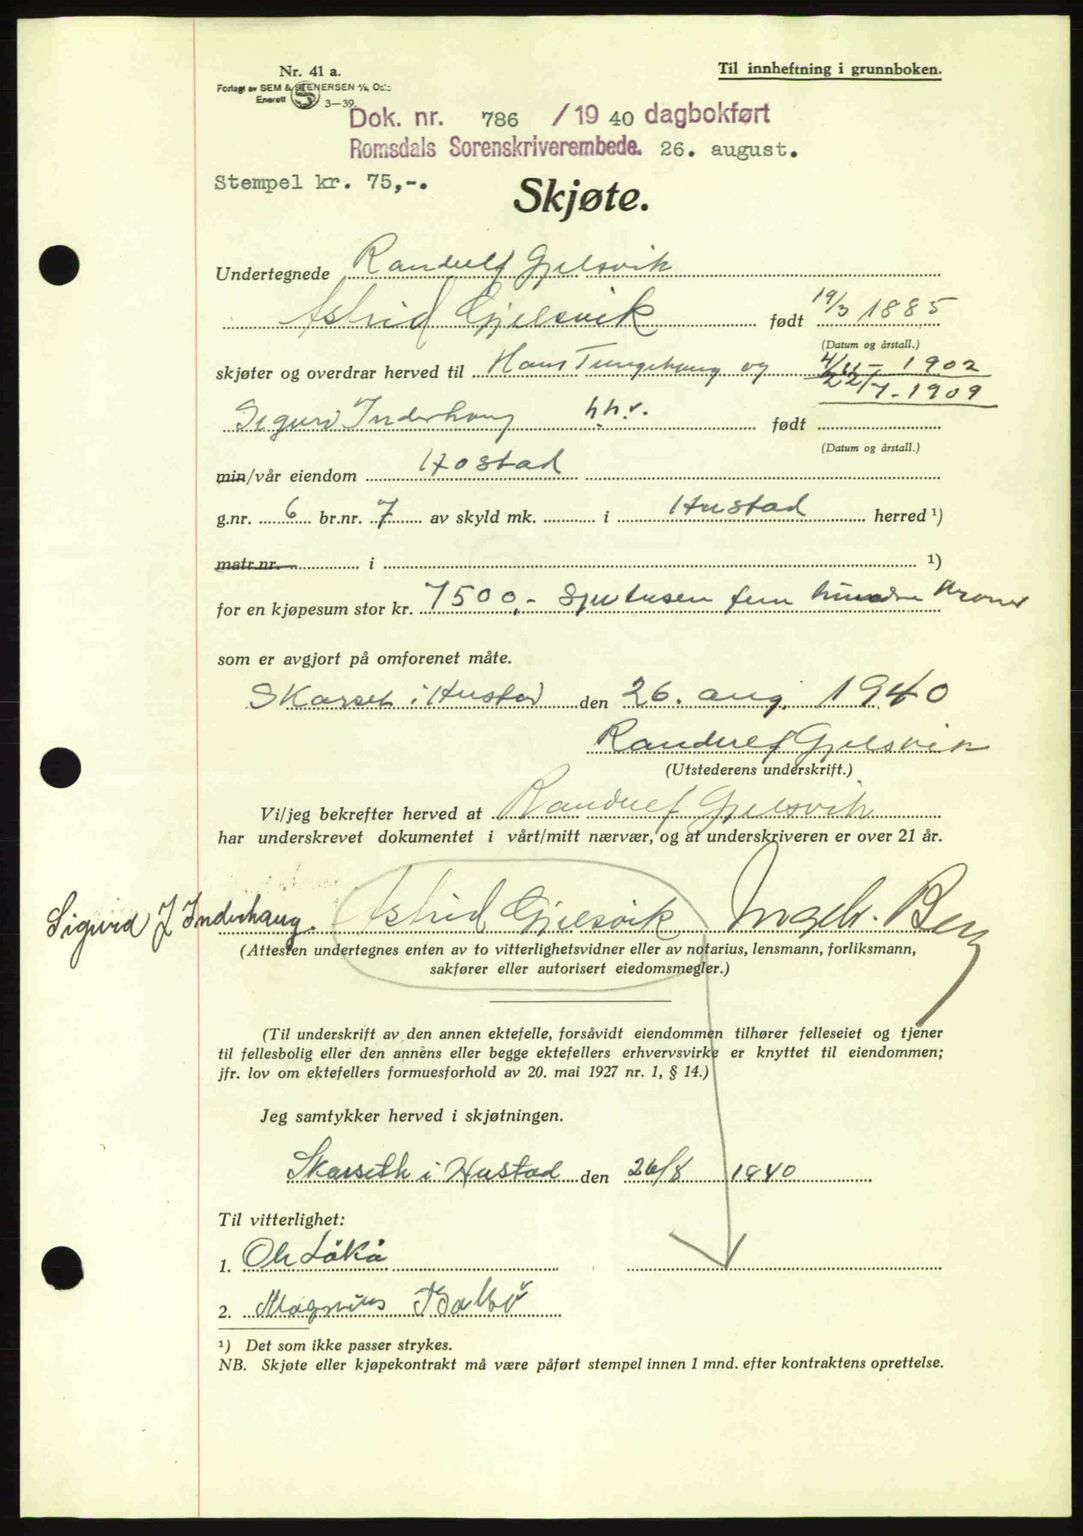 Nr. 41 a.
Forlagt av SEM & STENERSEN A/S, Oslo
Enerett S 3—39.
Til innheftning i grunnboken.
Dok. nr. 786 / 19 40 dagbokført
Romsdals Sorenskriverembede. 26. august.
Stempel kr. 75,-.
Skjøte.
Undertegnede Randulf Gjelsvik
Astrid Gjelsvik født 19/3 1885
(Datum og årstall.)
skjøter og overdrar herved til Hans Tungehaug og 4/11 - 1902
22/7 - 1909
Sigurd Inderhaug h.h.v. født
(Datum og årstall.)
min/vår eiendom Hostad
g.nr. 6 br.nr. 7 av skyld mk. i Hustad herred ¹)
matr.nr. i ¹)
for en kjøpesum stor kr. 7500,- Sju tusen fem hundre kroner
som er avgjort på omforenet måte.
Skarset i Hustad den 26. aug. 1940
Randulf Gjelsvik
(Utstederens underskrift.)
Vi/jeg bekrefter herved at Randulf Gjelsvik
har underskrevet dokumentet i vårt/mitt nærvær, og at underskriveren er over 21 år.
Sigurd J Inderhaug. Astrid Gjelsvik Ingebr. Berg
(Attesten undertegnes enten av to vitterlighetsvidner eller av notarius, lensmann, forliksmann,
sakfører eller autorisert eiedomsmegler.)
(Til underskrift av den annen ektefelle, forsåvidt eiendommen tilhører felleseiet og tjener
til fellesbolig eller den annens eller begge ektefellers erhvervsvirke er knyttet til eiendommen;
jfr. lov om ektefellers formuesforhold av 20. mai 1927 nr. 1, § 14.)
Jeg samtykker herved i skjøtningen.
Skarseth i Hustad den 26/8 1940
Til vitterlighet:
1. Ole Låkå
2. Magnus
¹) Det som ikke passer strykes.
NB. Skjøte eller kjøpekontrakt må være påført stempel innen 1 mnd. efter kontraktens oprettelse.